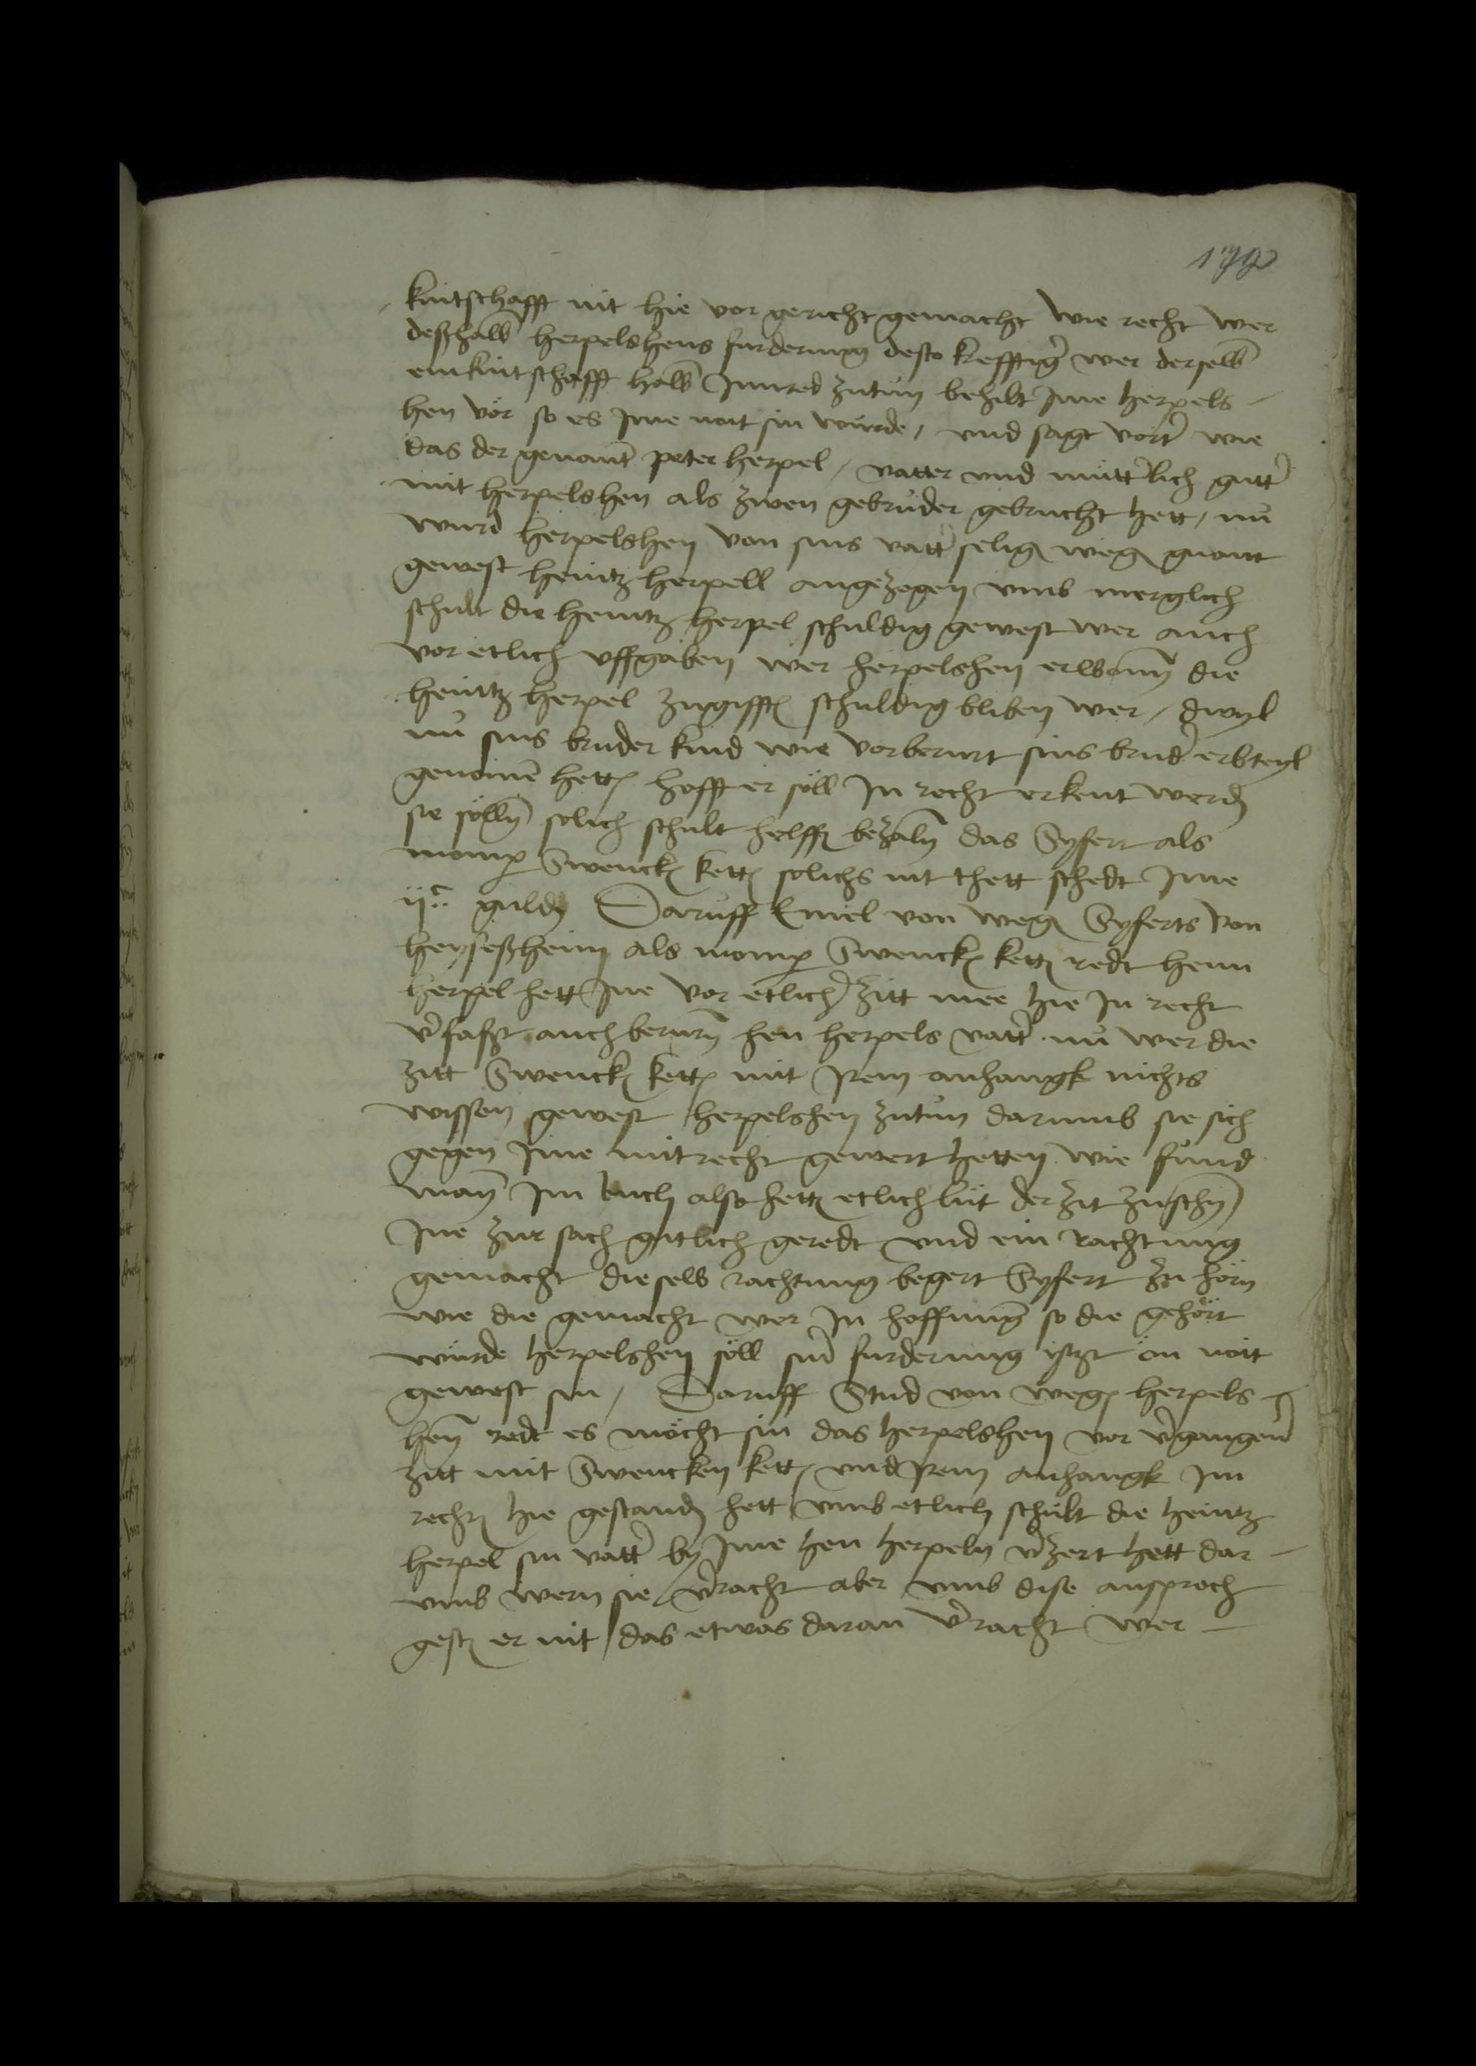 kuntschafft nit hie vor gericht gemacht wie recht wer
deßhalb herpelshens furderung desto krefftig̉ wer derselb̄
einkuntschafft halb Innred zutun behilt Ime herpels
hen vor so es Ime not sin wurde / vnd sagt vort̉ wie
das der genant peter herpel / vatter vnd mutt̉lich gutt̉
mit herpelshen als zwen gebruder gebrucht hett / nu
wurd herpelshen von sins vatt̉ selig wegen gnant
gewest heintz herpell angezogen vmb merglich
schult die heintz herpel schuldig gewest wer auch
vor etlich vffgaben wer herpelshen die
heintz herpel zugifft schuldig bliben wer / dwyl
nu sins bruder kind wie vorberurt sins brud̉ erbteyl
genomē hett hofft er söll In recht erkent werdē
sie sölln̄ solich schult helffē bezaln̄ das Syfert als
momp Swencken kett solichs nit thett schedt Ime
guldē Daruff Emel von wegē Syferts von
heyseßheim als momp Swencken kett redt henn
herpel hett Ine vor etlich̉ zitt mee hie In recht
v̉fast auch berurn̄ hen herpels vatt̉ nu wer die
zitt Swencken kett mit Irem anhangk nichts
wissen gewest herpelshen zutun darumb sie sich
gegen Ime mit recht gewert hetten wie fund
man̄ Im buch also hett etlich lut der zit zuschn̄
Ine zur sach gutlich geredt vnd ein Rachtung
gemacht dieselb rachtung begert Syfert zu hörn
wie die gemacht wer In hoffnung so die gehört
würde herpelshen söll sin̄ furderung itzt on nott
gewest sin / Daruff Stud von wegē herpels
hen̄ redt es möcht sin das herpelshen vor v̉gangen̄
zitt mit Swencken kett vnd Irem anhangk Im
rechtē hie gestandē hett vmb etlich schult die heintz
herpel sin vatt̉ by Ime hen herpeln v̉zert hett dar
vmb wern sie v̉racht aber vmb dise ansproch
gest er nit / das etwas daran v̉racht wer